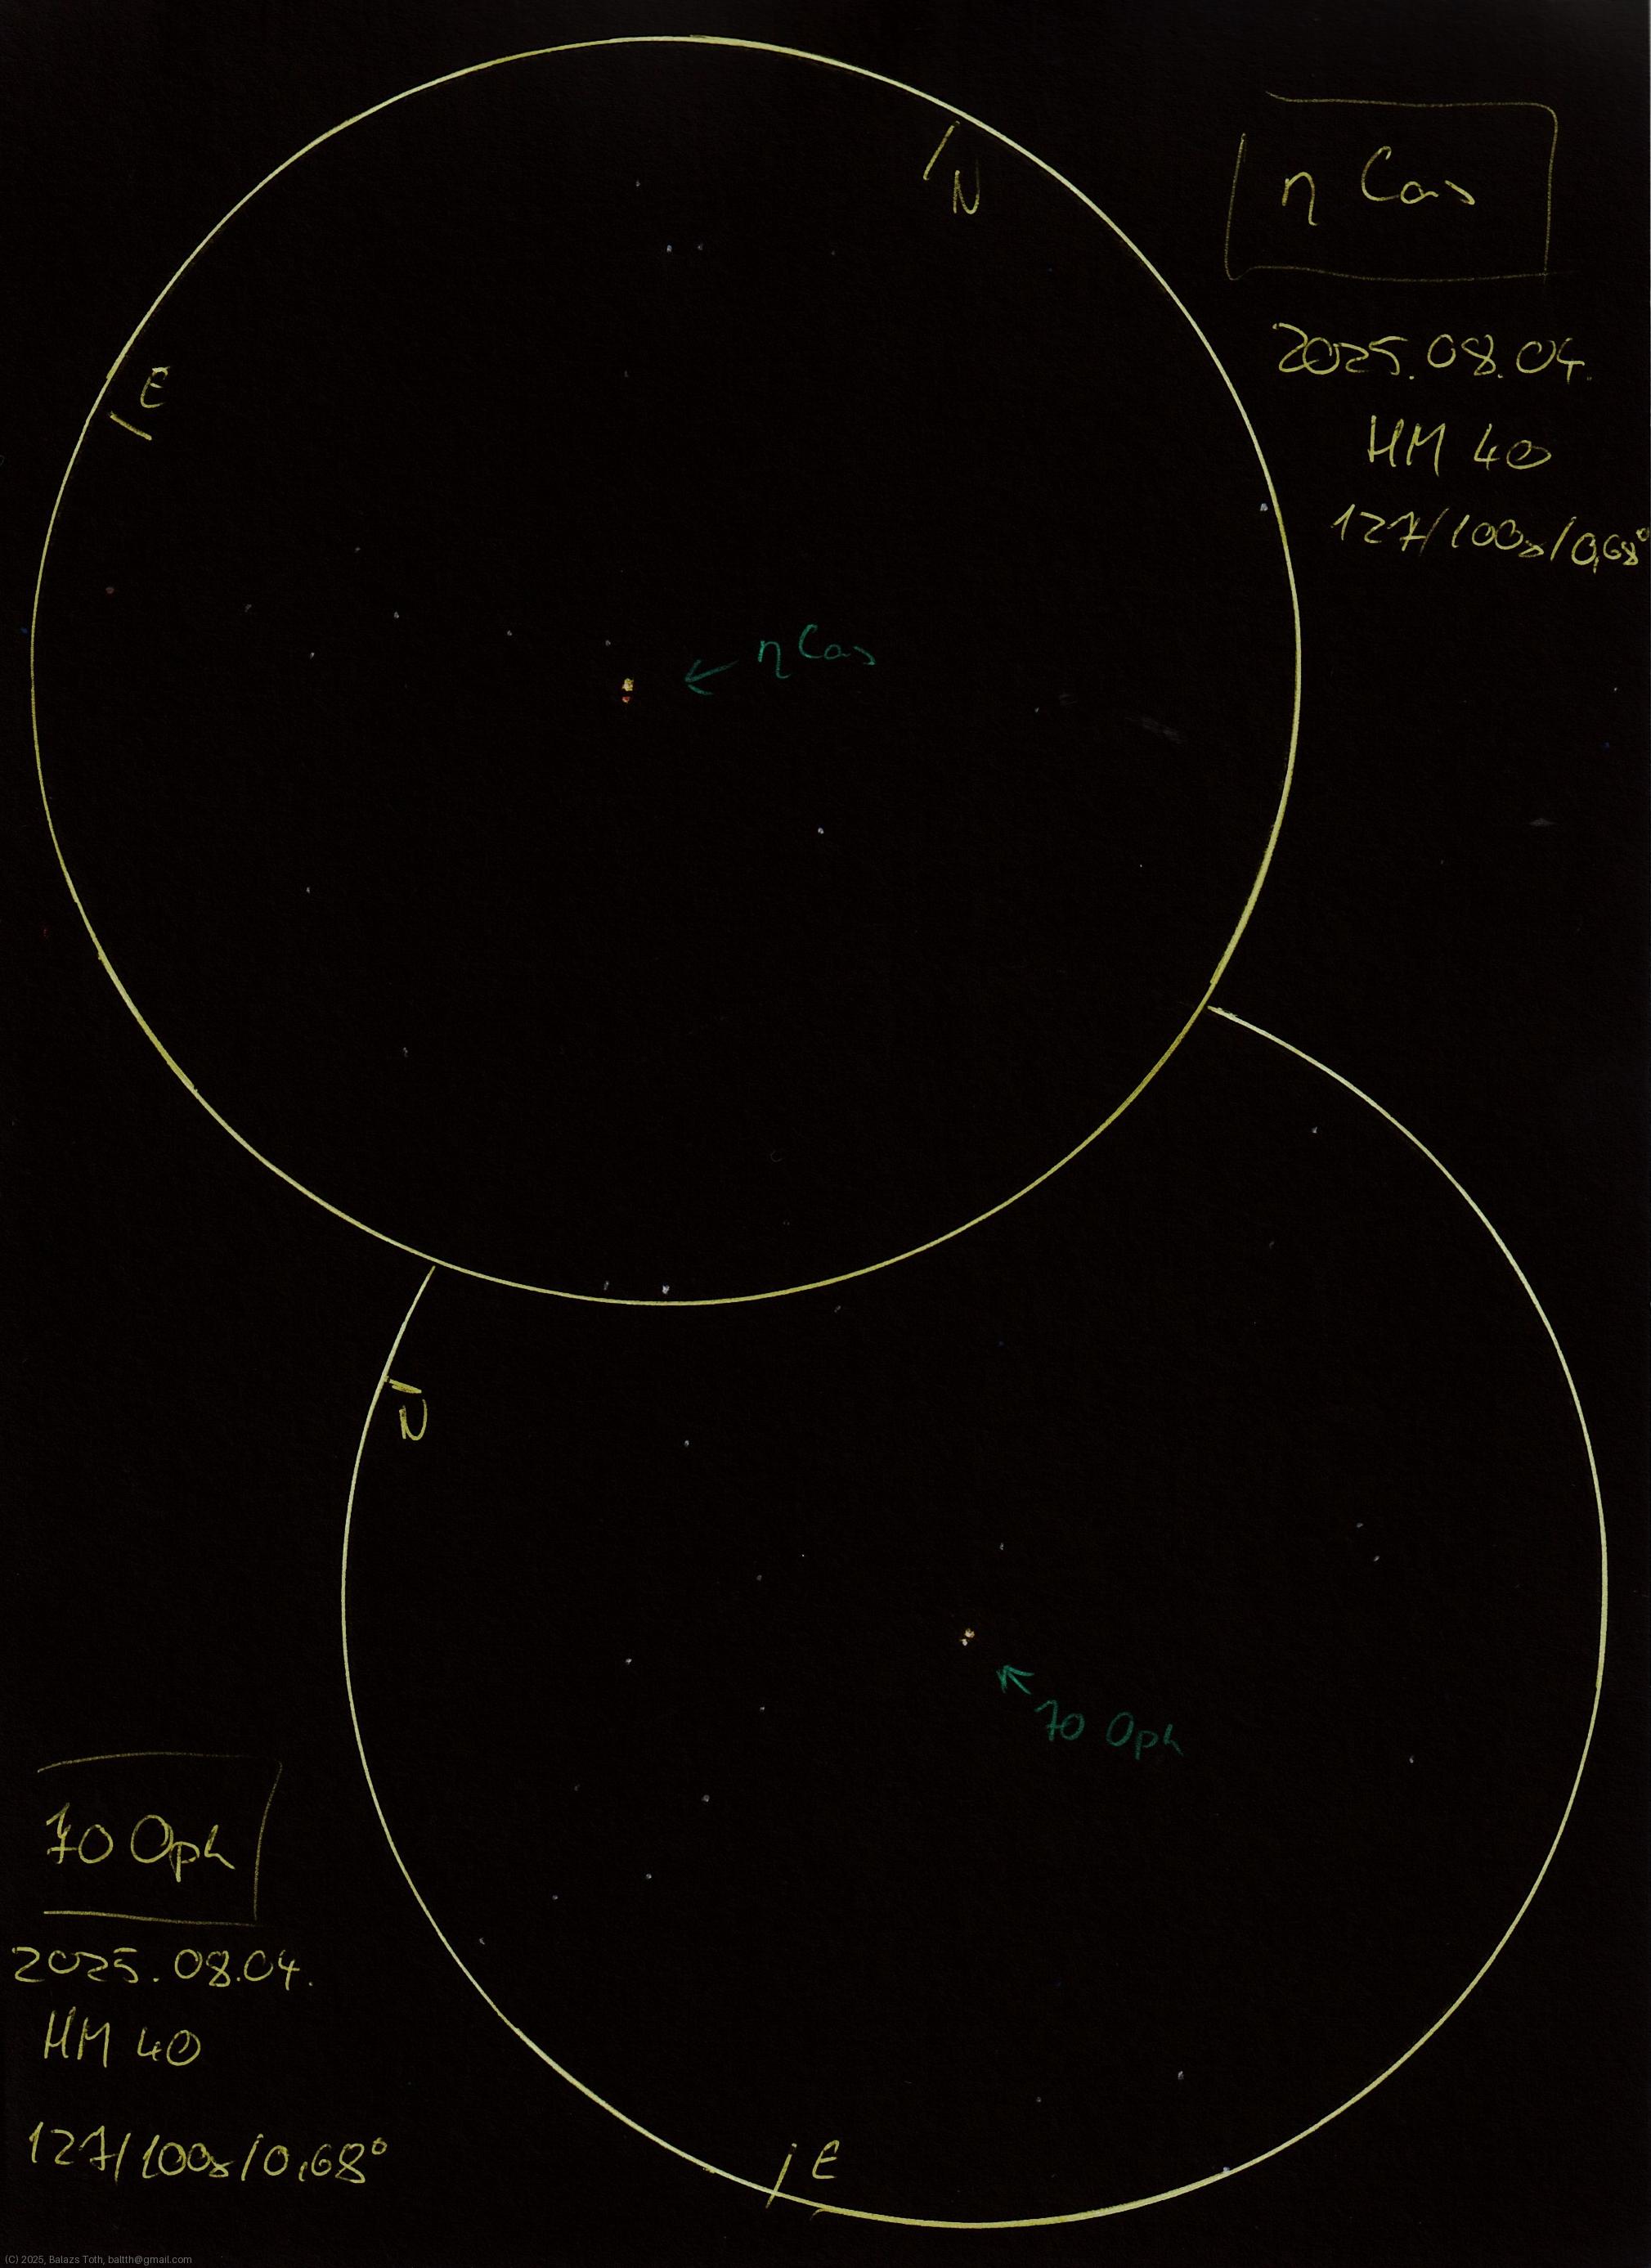 N
η Cas
2025.08.04.
E
HM 40
127/100x/0,68°
← η Cas
N
↖
70 Oph
70 Oph
2025.08.04.
HM 40
127/100x/0,68°
E
(C) 2025, Balazs Toth, baltth@gmail.com